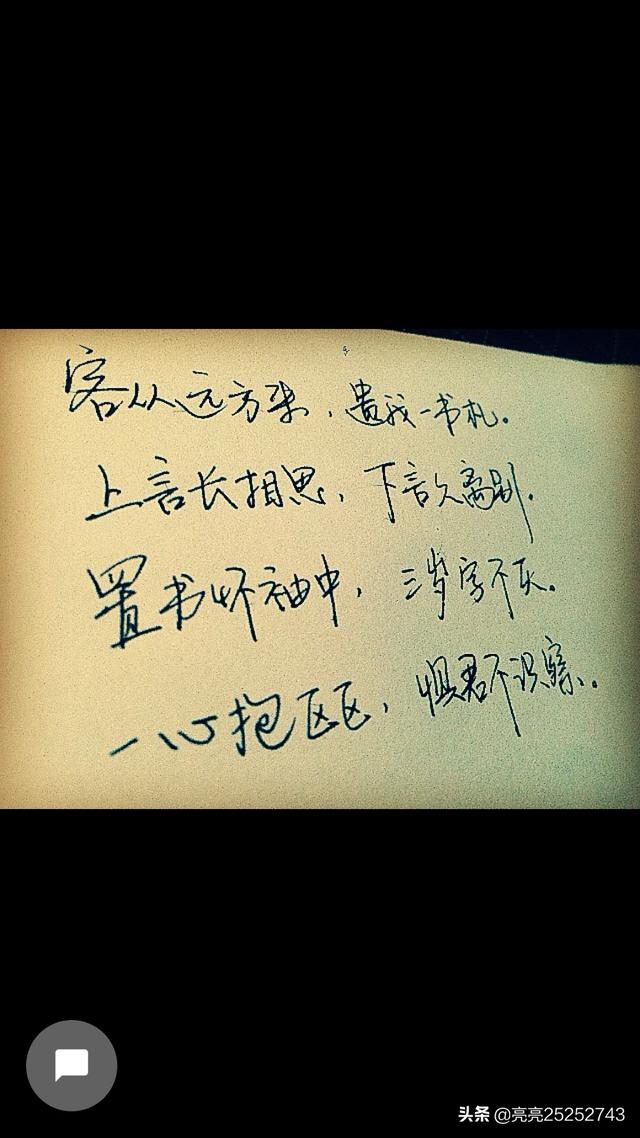 客从远方来，遗我一书札。
上言长相思，下言久离别。
置书怀袖中，三岁字不灭。
一心抱区区，惧君不识察。
头条 @亮亮25252743